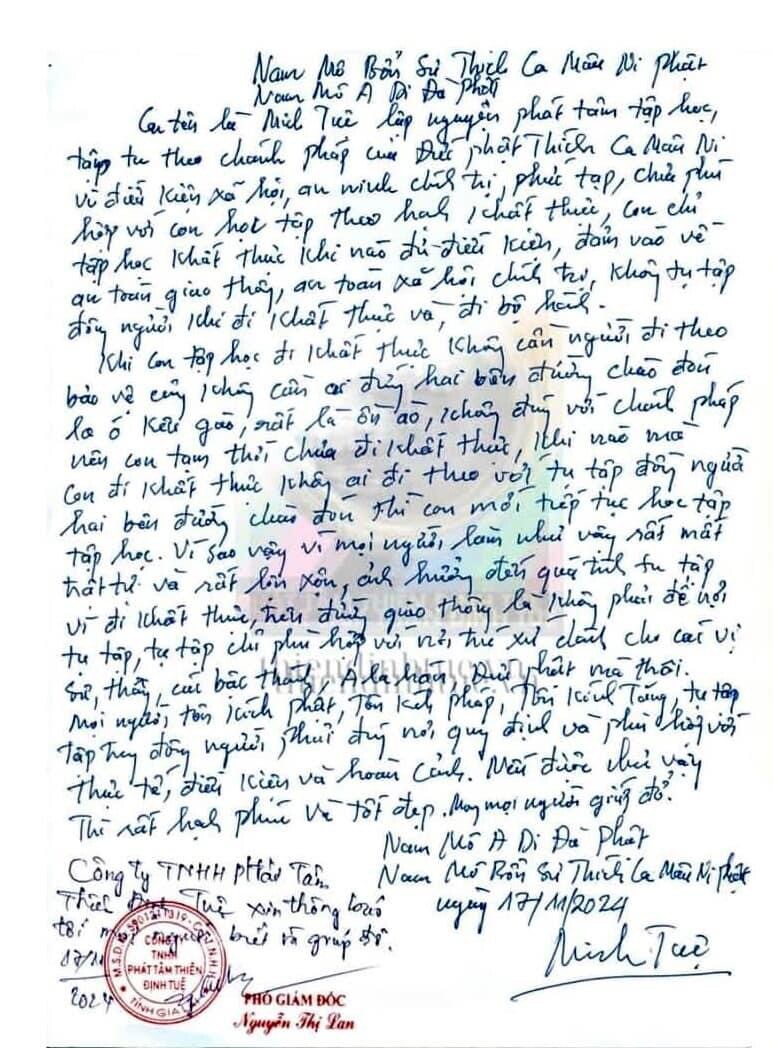 Nam Mô Bổn Sư Thích Ca Mâu Ni Phật
Nam Mô A Di Đà Phật
Con tên là Minh Tuệ lập nguyện phát tâm tập học,
tập tu theo chánh pháp của Đức Phật Thích Ca Mâu Ni
vì điều kiện xã hội, an ninh chính trị, phức tạp, chưa phù
hợp với con học tập theo hạnh khất thực, con chỉ
tập học khất thực khi nào đủ điều kiện, đảm bảo về
an toàn giao thông, an toàn xã hội chính trị, không tụ tập
đông người khi đi khất thực và, đi bộ hành.
Khi con tập học đi khất thực không cần người đi theo
bảo vệ cũng không cần ai đứng hai bên đường chào đón
la ó kêu gào, rất là ồn ào, không đúng với chánh pháp
nên con tạm thời chưa đi khất thực, khi nào mà
con đi khất thực không ai đi theo với tụ tập đông người
hai bên đường chào đón thì con mới tiếp tục học tập
tập học. Vì sao vậy vì mọi người làm như vậy rất mất
trật tự và rất lộn xộn, ảnh hưởng đến quá trình tu tập
vì đi khất thực, trên đường giao thông là không phải để nơi
tụ tập, tụ tập chỉ phù hợp với nơi trú xứ dành cho các vị
sư, thầy, các bậc thánh, A la hán, Đức Phật mà thôi.
Mọi người, tôn kính Phật, Tôn kính pháp, Tôn kính Tăng, tụ tập
tập trung đông người phải đúng nơi, quy định và phù hợp với
thực tế, điều kiện và hoàn cảnh. Nếu được như vậy
Thì rất hạnh phúc và tốt đẹp. Mong mọi người giúp đỡ.
Nam Mô A Di Đà Phật
Nam Mô Bổn Sư Thích Ca Mâu Ni Phật
ngày 17/11/2024
Minh Tuệ
Công ty TNHH Phát Tâm
Thiền Định Tuệ xin thông báo
tới mọi người biết và giúp đỡ.
17/11
2024
CÔNG TY
TNHH
PHÁT TÂM THIỀN
ĐỊNH TUỆ
TỈNH GIA LAI
PHÓ GIÁM ĐỐC
Nguyễn Thị Lan